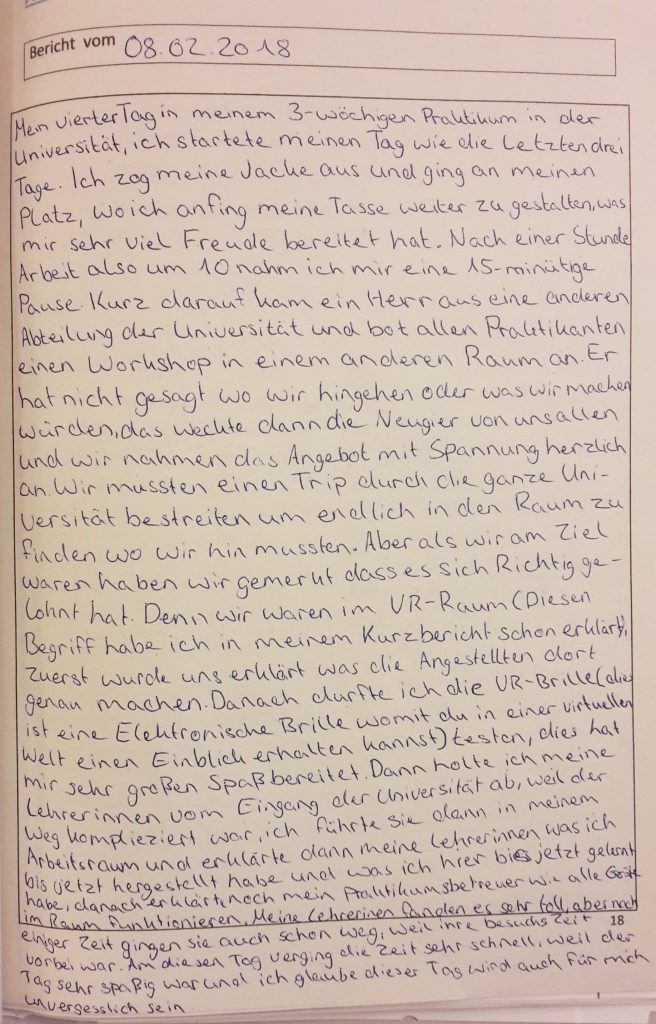 Bericht vom 08.02.2018
Mein vierter Tag in meinem 3-wöchigen Praktikum in der
Universität, ich startete meinen Tag wie die Letzten drei
Tage. Ich zog meine Jacke aus und ging an meinen
Platz, wo ich anfing meine Tasse weiter zu gestalten, was
mir sehr viel Freude bereitet hat. Nach einer Stunde
Arbeit also um 10 nahm ich mir eine 15-minütige
Pause. Kurz darauf kam ein Herr aus eine anderen
Abteilung der Universität und bot allen Praktikanten
einen Workshop in einem anderen Raum an. Er
hat nicht gesagt wo wir hingehen oder was wir machen
würden, das weckte dann die Neugier von uns allen
und wir nahmen das Angebot mit Spannung herzlich
an. Wir mussten einen Trip durch die ganze Uni-
versität bestreiten um endlich in den Raum zu
finden wo wir hin mussten. Aber als wir am Ziel
waren haben wir gemerkt dass es sich Richtig ge-
lohnt hat. Denn wir waren im VR-Raum (Diesen
Begriff habe ich in meinem Kurzbericht schon erklärt),
Zuerst wurde uns erklärt was die Angestellten dort
genau machen. Danach durfte ich die VR-Brille (dies
ist eine Elektronische Brille womit du in einer virtuellen
Welt einen Einblick erhalten kannst) testen, dies hat
mir sehr großen Spaß bereitet. Dann holte ich meine
Lehrerinnen vom Eingang der Universität ab, weil der
Weg kompliziert war, ich führte sie dann in meinem
Arbeitsraum und erklärte dann meine Lehrerinnen was ich
bis jetzt hergestellt habe und was ich hier bis jetzt gelernt
habe, danach erklärte noch mein Praktikumsbetreuer wie alle Geräte
im Raum funktionieren. Meine Lehrerinen fanden es sehr toll, aber nach
18
einiger Zeit gingen sie auch schon weg, weil ihre besuchs Zeit
vorbei war. Am diesen Tag verging die Zeit sehr schnell, weil der
Tag sehr spaßig war und ich glaube dieser Tag wird auch für mich
unvergesslich sein